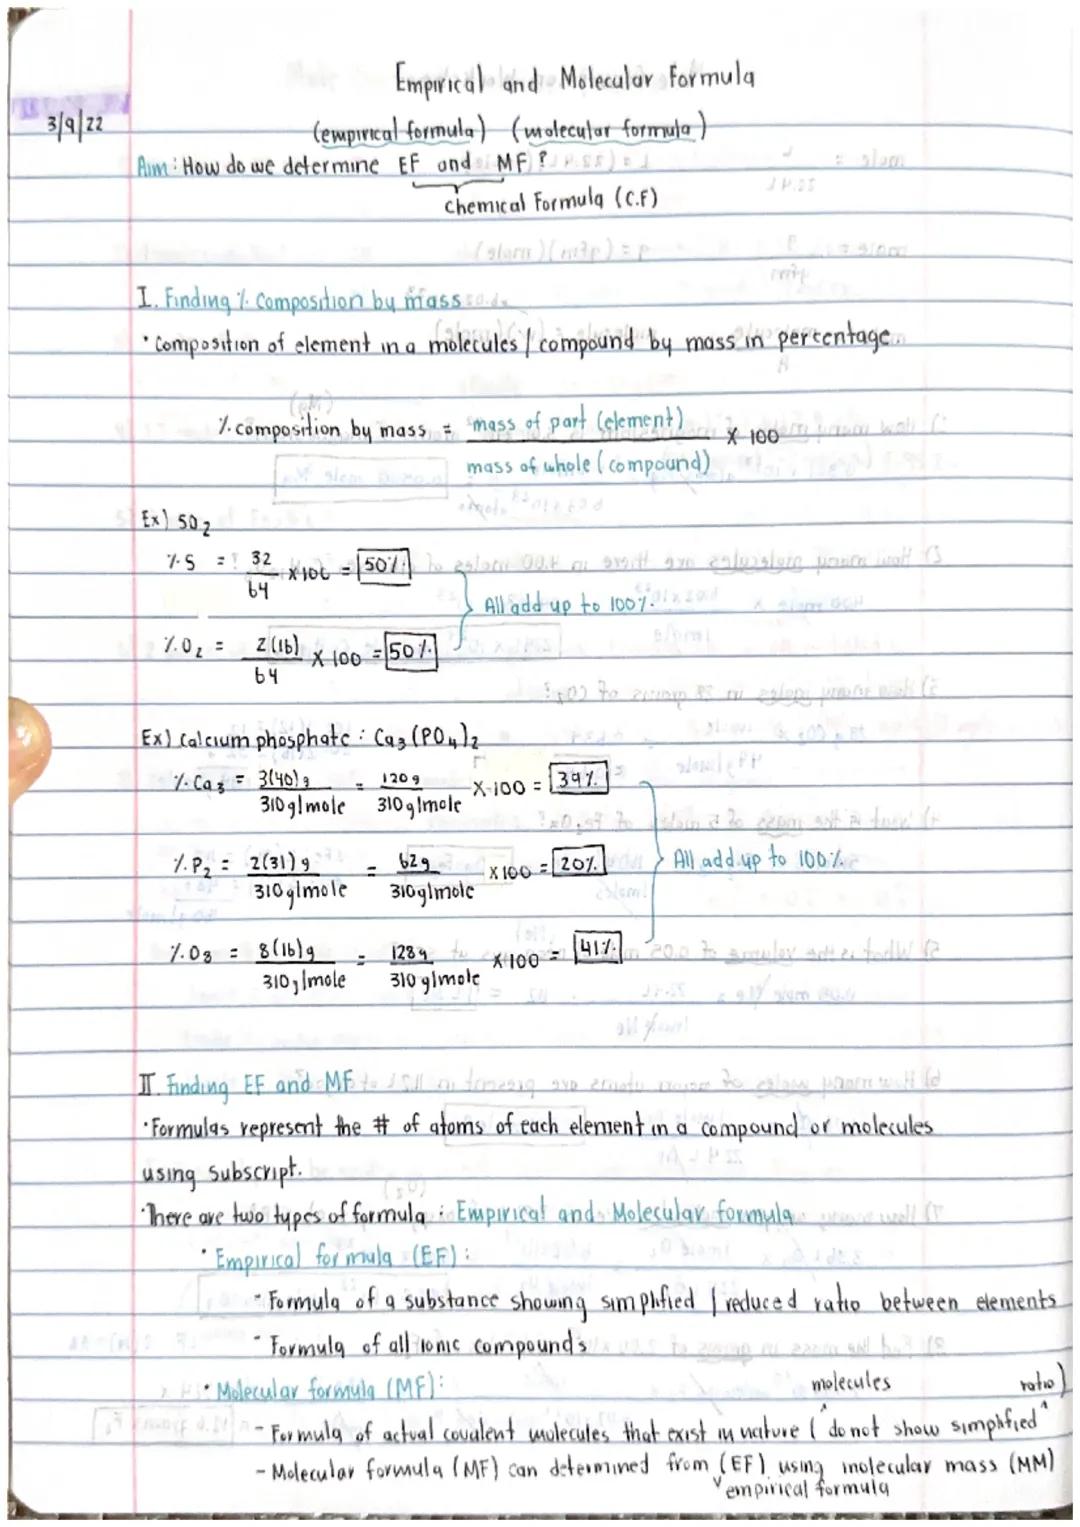 Empirical and Molecular Formula
3/9/22
(empirical formula) (molecular formula)
Aim: How do we determine EF and MF?
Chemical Formula (C.F)
I. Finding % Composition by mass
· Composition of element in a molecules / compound by mass in percentage.
% composition by mass = mass of part (element) / mass of whole (compound) X 100
Ex) SO2
% S = 32/64 X 100 = 50%
All add up to 100%.
% O2 = 2(16)/64 X 100 = 50%
Ex) Calcium phosphate : Ca3(PO4)2
% Ca3 = 3(40)g / 310 g/mole = 120 g / 310 g/mole X 100 = 39%
% P2 = 2(31)g / 310 g/mole = 62g / 310 g/mole X 100 = 20%
All add up to 100%
% O8 = 8(16)g / 310 g/mole = 128g / 310 g/mole X 100 = 41%
II. Finding EF and MF
· Formulas represent the # of atoms of each element in a compound or molecules
using subscript.
· There are two types of formula : Empirical and Molecular formula
· Empirical formula (EF) :
- Formula of a substance showing simplified / reduced ratio between elements
- Formula of all ionic compounds
· Molecular formula (MF):
molecules ratio)
- Formula of actual covalent molecules that exist in nature ( ^ do not show simplified ^
- Molecular formula (MF) can determined from (EF) using molecular mass (MM)
empirical formula